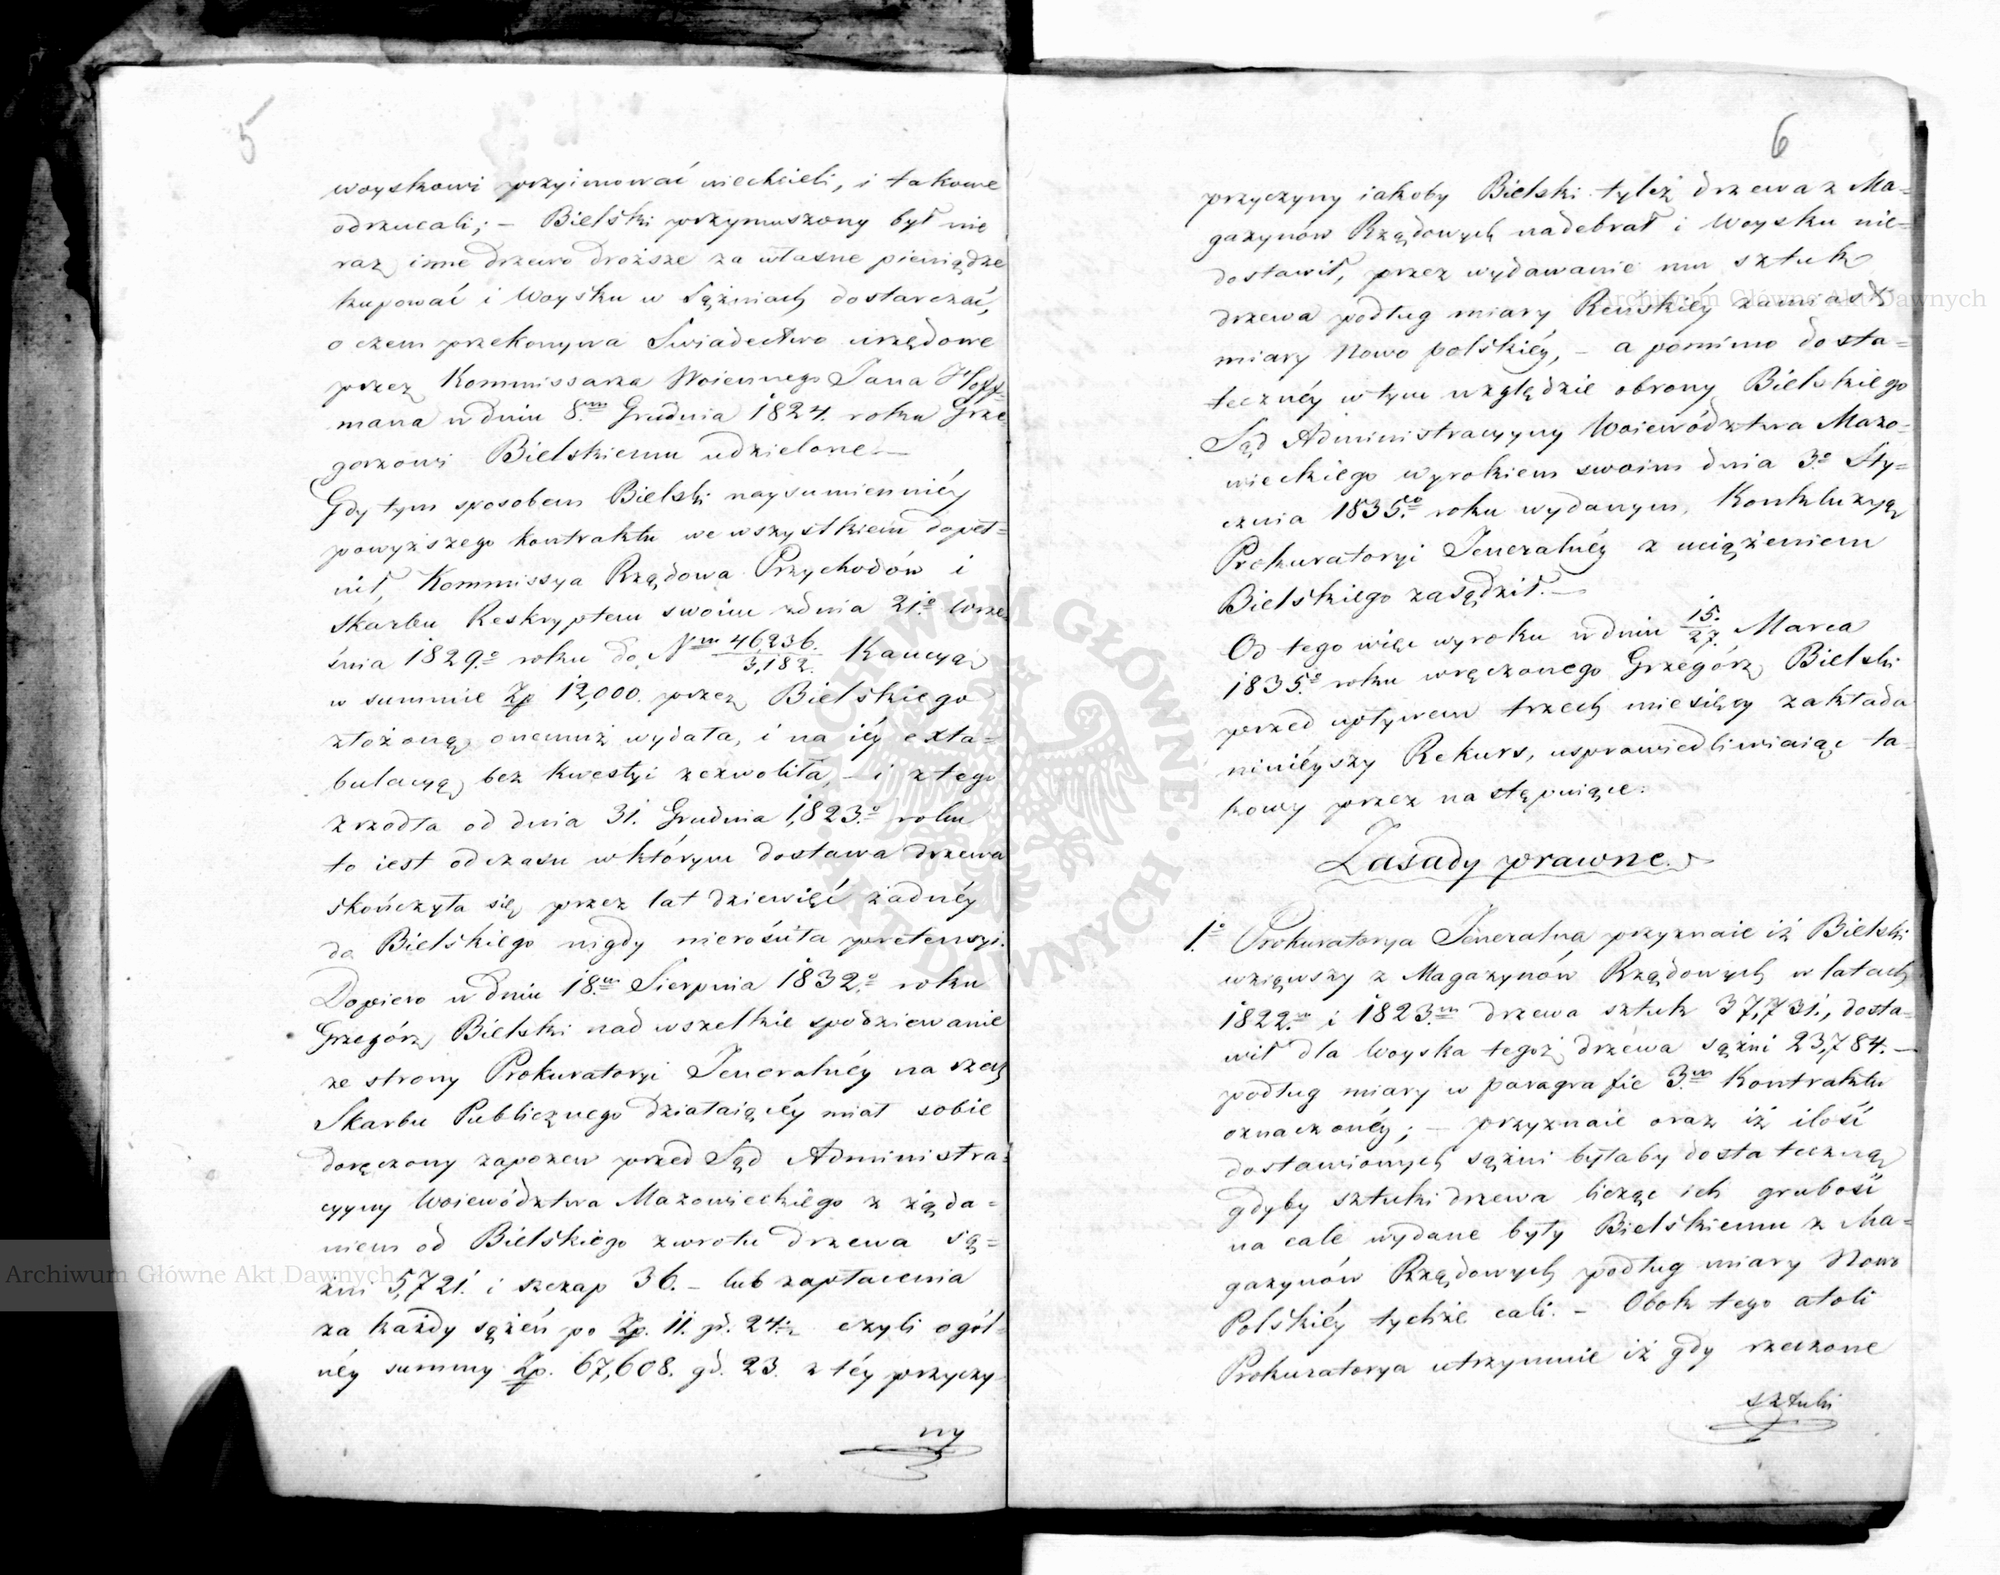 5
woyskowi przyimować niechcieli, i takowe
odrzucali; – Bielski przymuszony był nie
raz inne drzewo droższe za własne pieniądze
kupować i Woysku w Sążniach dostarczać,
o czem przekonywa Swiadectwo urzędowe
przez Kommissarza Woiennego Jana Hoff-
mana w dniu 8.m Grudnia 1824. roku Grze-
gorzowi Bielskiemu udzielone. –
Gdy tym sposobem Bielski naysumienniéy
powyższego kontraktu we wszystkiem dopeł-
nił, Kommissya Rządowa Przychodów i
Skarbu Reskryptem swoim z dnia 21.o Wrze-
śnia 1829.o roku do Nrm 46,236./3,182. Kaucyą
w summie Zp 12,000. przez Bielskiego
złożoną onemuż wydała, i na iéy exta-
bulacyą bez kwestyi zezwoliła, – i z tego
zrzodła od dnia 31. Grudnia 1,823.o roku
to iest od czasu w którym dostawa drzewa
skończyła się przez lat dziewięć żadnéy
do Bielskiego nigdy nierościła pretensyi.
Dopiero w dniu 18.m Sierpnia 1832.o roku
Grzegórz Bielski nad wszelkie spodziewanie
ze strony Prokuratoryi Jeneralnéy na rzecz
Skarbu Publicznego działaiącéy miał sobie
doręczony zapozew przed Sąd Administra-
cyyny Województwa Mazowieckiégo z żąda-
niem od Bielskiégo zwrotu drzewa są-
żni 5,721. i szczap 36. – lub zapłacenia
za każdy sążeń po Zp. 11. gr. 24 1/2 czyli ogól-
néy summy Zp. 67,608. gr. 23. z téy przyczy-
ny
6
przyczyny iakoby Bielski tyleż drzewa z Ma-
gazynów Rządowych nadebrał i Woysku nie-
dostawił, przez wydawanie mu sztuk
drzewa podług miary Reńskiéy zamiast
miary Nowo polskiéy, – a pomimo dosta-
tecznéy w tym względzie obrony Bielskiego
Sąd Administracyyny Woiewództwa Mazo-
wieckiego wyrokiem swoim dnia 3.o Sty-
cznia 1835.o roku wydanym, Konkluzyą
Prokuratoryi Jeneralnéy z uciążeniem
Bielskiego zasądził. –
Od tego więc wyroku w dniu 15./27. Marca
1835.o roku wręczonego Grzegórz Bielski
przed upływem trzech miesięcy zakłada
ninieyszy Rekurs, usprawiedliwiaiąc ta-
kowy przez następuiące:
Zasady prawne.
1.o Prokuratorya Jeneralna przyznaie iż Bielski
wziąwszy z Magazynów Rządowych w latach
1822.m i 1823.m drzewa sztuk 37,731., dosta-
wił dla Woyska tegoż drzéwa sążni 23,784. –
podług miary w paragrafie 3.m Kontraktu
oznaczonéy; – przyznaie oraz iż ilość
dostawionych sążni byłaby dostateczną
gdyby sztuki drzewa licząc ich grubość
na cale wydane były Bielskiemu z Ma-
gazynów Rządowych podług miary Nowo
Polskiéy tychże cali. – Obok tego atoli
Prokuratorya utrzymuie iż gdy rzeczone
sztuki
ARCHIWUM GŁÓWNE AKT DAWNYCH
Archiwum Główne Akt Dawnych
Archiwum Główne Akt Dawnych